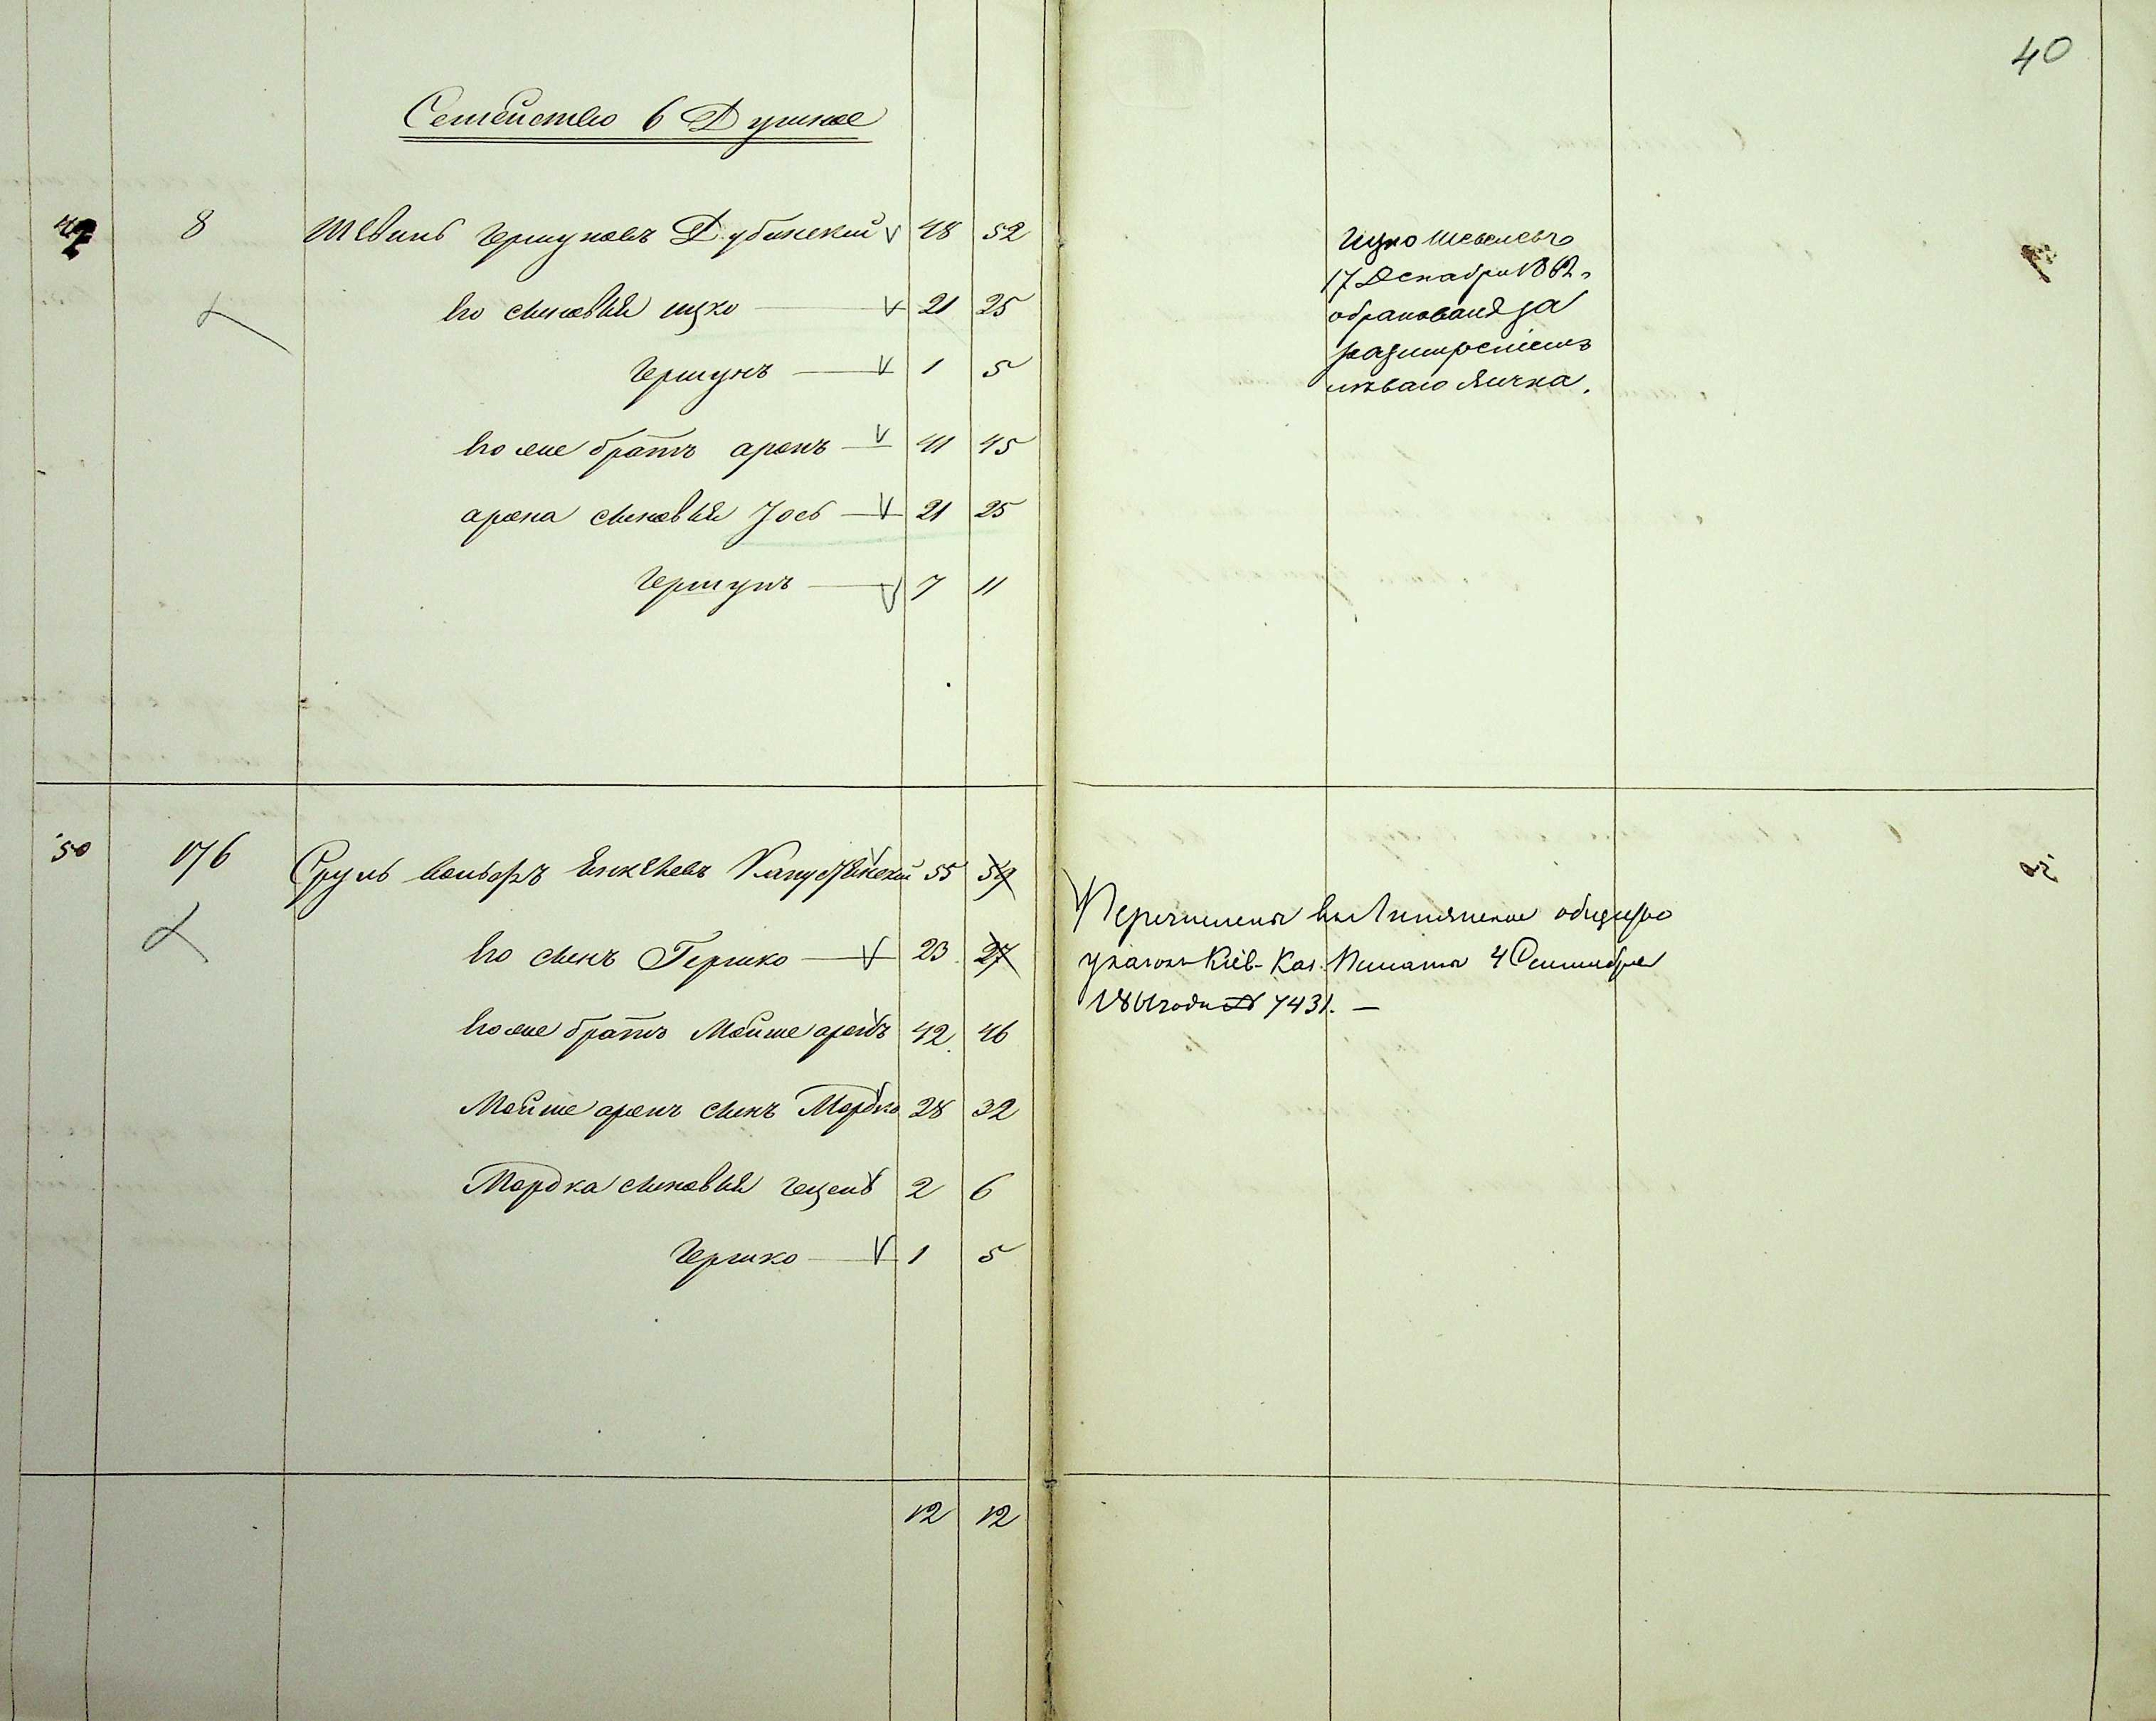 40
Семейство 6 Душное
8 Шевель Гершуновъ Дубинский 48 52
Его сыновья ицко 21 25
Гершунъ 1 5
Его же братъ аронъ 41 45
арона сыновья Іось 21 25
Гершунъ 7 11
Ицко Шевелевъ
17 Декабря 1862
обракованъ за
разширеніемъ
лѣваго яичка.
50 176 Сруль Вольфъ Янкелевъ Капустянский 55 59
Его сынъ Гершко 23 27
Его же братъ Мойше аронъ 42 46
Мойше аронъ сынъ Мордко 28 32
Мордка сыновья 2 6
Гершко 1 5
Перечислены въ общество
указомъ Кіев. Каз. Палаты 4 Сентября
1861 года № 7431. —
50
12 12